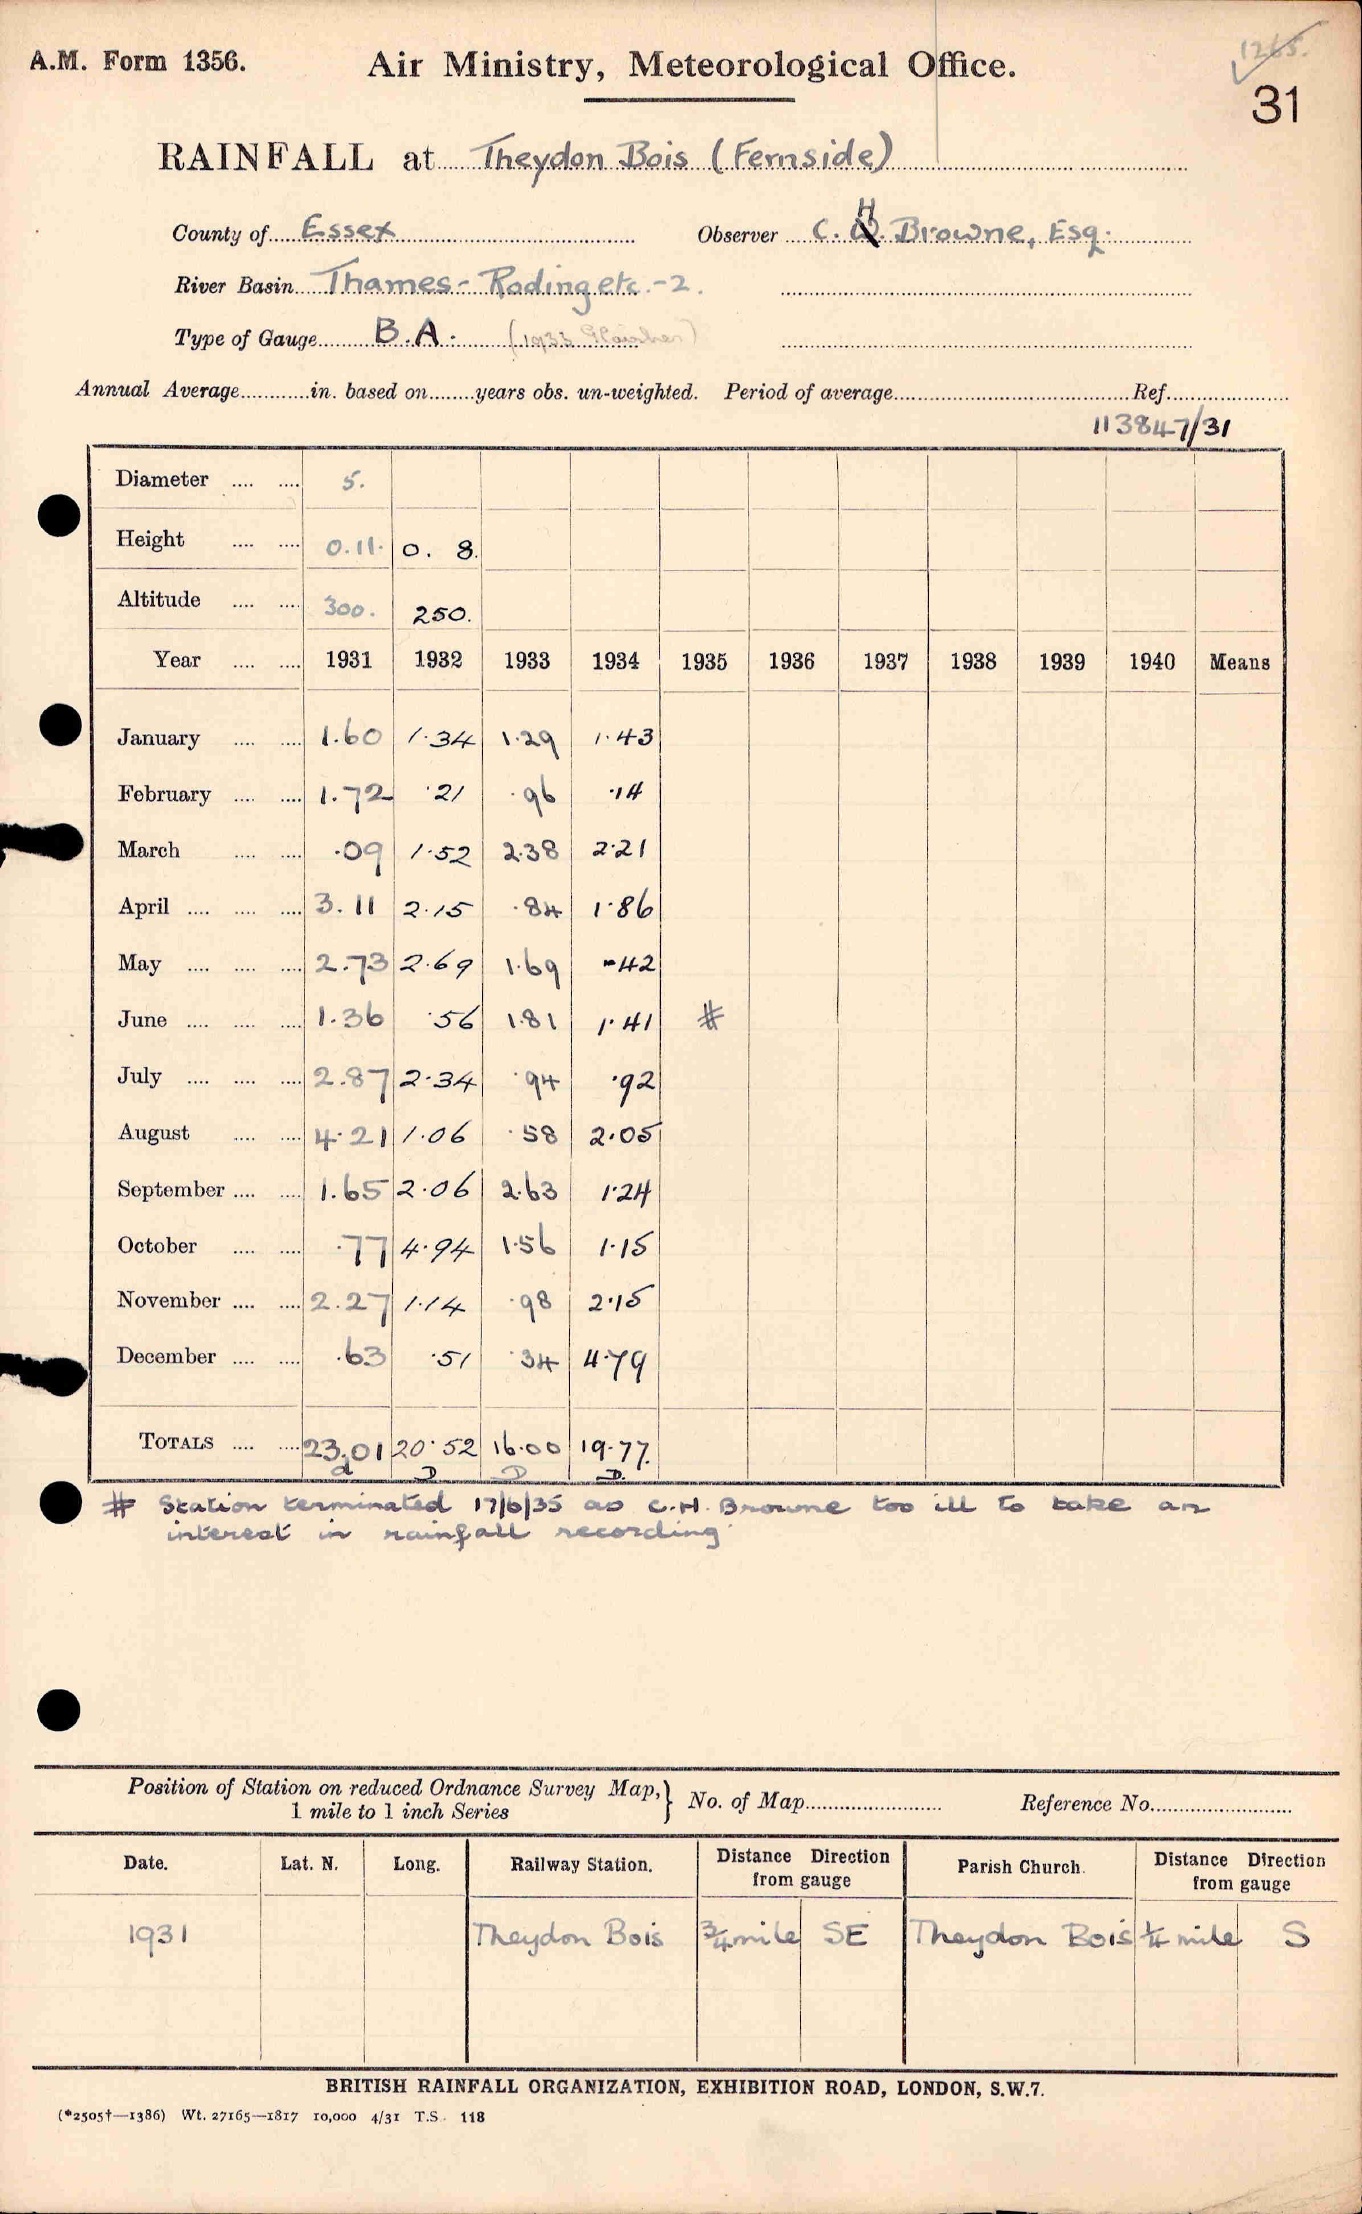 1265.
A.M. Form 1356.
Air Ministry, Meteorological Office.
31
RAINFALL at Theydon Bois (Fernside)
County of Essex Observer C. H. Browne, Esq.
River Basin Thames - Roding etc. - 2.
Type of Gauge B.A. (1933 Glaisher)
Annual Average............in. based on........years obs. un-weighted. Period of average............Ref............
113847/31
Diameter .... .... 5.
Height .... .... 0.11. 0. 8.
Altitude .... .... 300. 250.
Year .... .... 1931 1932 1933 1934 1935 1936 1937 1938 1939 1940 Means
January .... .... 1.60 1.34 1.29 1.43
February .... .... 1.72 .21 .96 .14
March .... .... .09 1.52 2.38 2.21
April .... .... .... 3.11 2.15 .84 1.86
May .... .... .... 2.73 2.69 1.69 .42
June .... .... .... 1.36 .56 1.81 1.41 #
July .... .... .... 2.87 2.34 .94 .92
August .... .... 4.21 1.06 .58 2.05
September .... .... 1.65 2.06 2.63 1.24
October .... .... .77 4.94 1.56 1.15
November .... .... 2.27 1.14 .98 2.15
December .... .... .63 .51 .34 4.79
TOTALS .... .... 23.01 20.52 16.00 19.77.
d D D D.
# Station terminated 17/6/35 as C.H. Browne too ill to take an
interest in rainfall recording
Position of Station on reduced Ordnance Survey Map, } No. of Map............ Reference No............
1 mile to 1 inch Series
Date. Lat. N. Long. Railway Station. Distance Direction from gauge Parish Church. Distance Direction from gauge
1931 Theydon Bois 3/4 mile SE Theydon Bois 1/4 mile S
BRITISH RAINFALL ORGANIZATION, EXHIBITION ROAD, LONDON, S.W.7.
(*2505†—1386) Wt. 27165—1817 10,000 4/31 T.S. 118